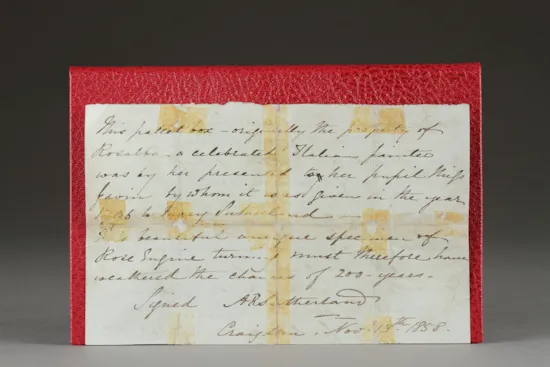 This patch box - originally the property of
Rosalba - a celebrated Italian painter
was by her presented to her pupil Miss
by whom it was given in the year
to Sutherland
beautiful unique specimen of
Rose Engine turning must therefore have
weathered the chances of 200 - years -
Signed ARSutherland
Craigston. Nov. 13th. 1858.